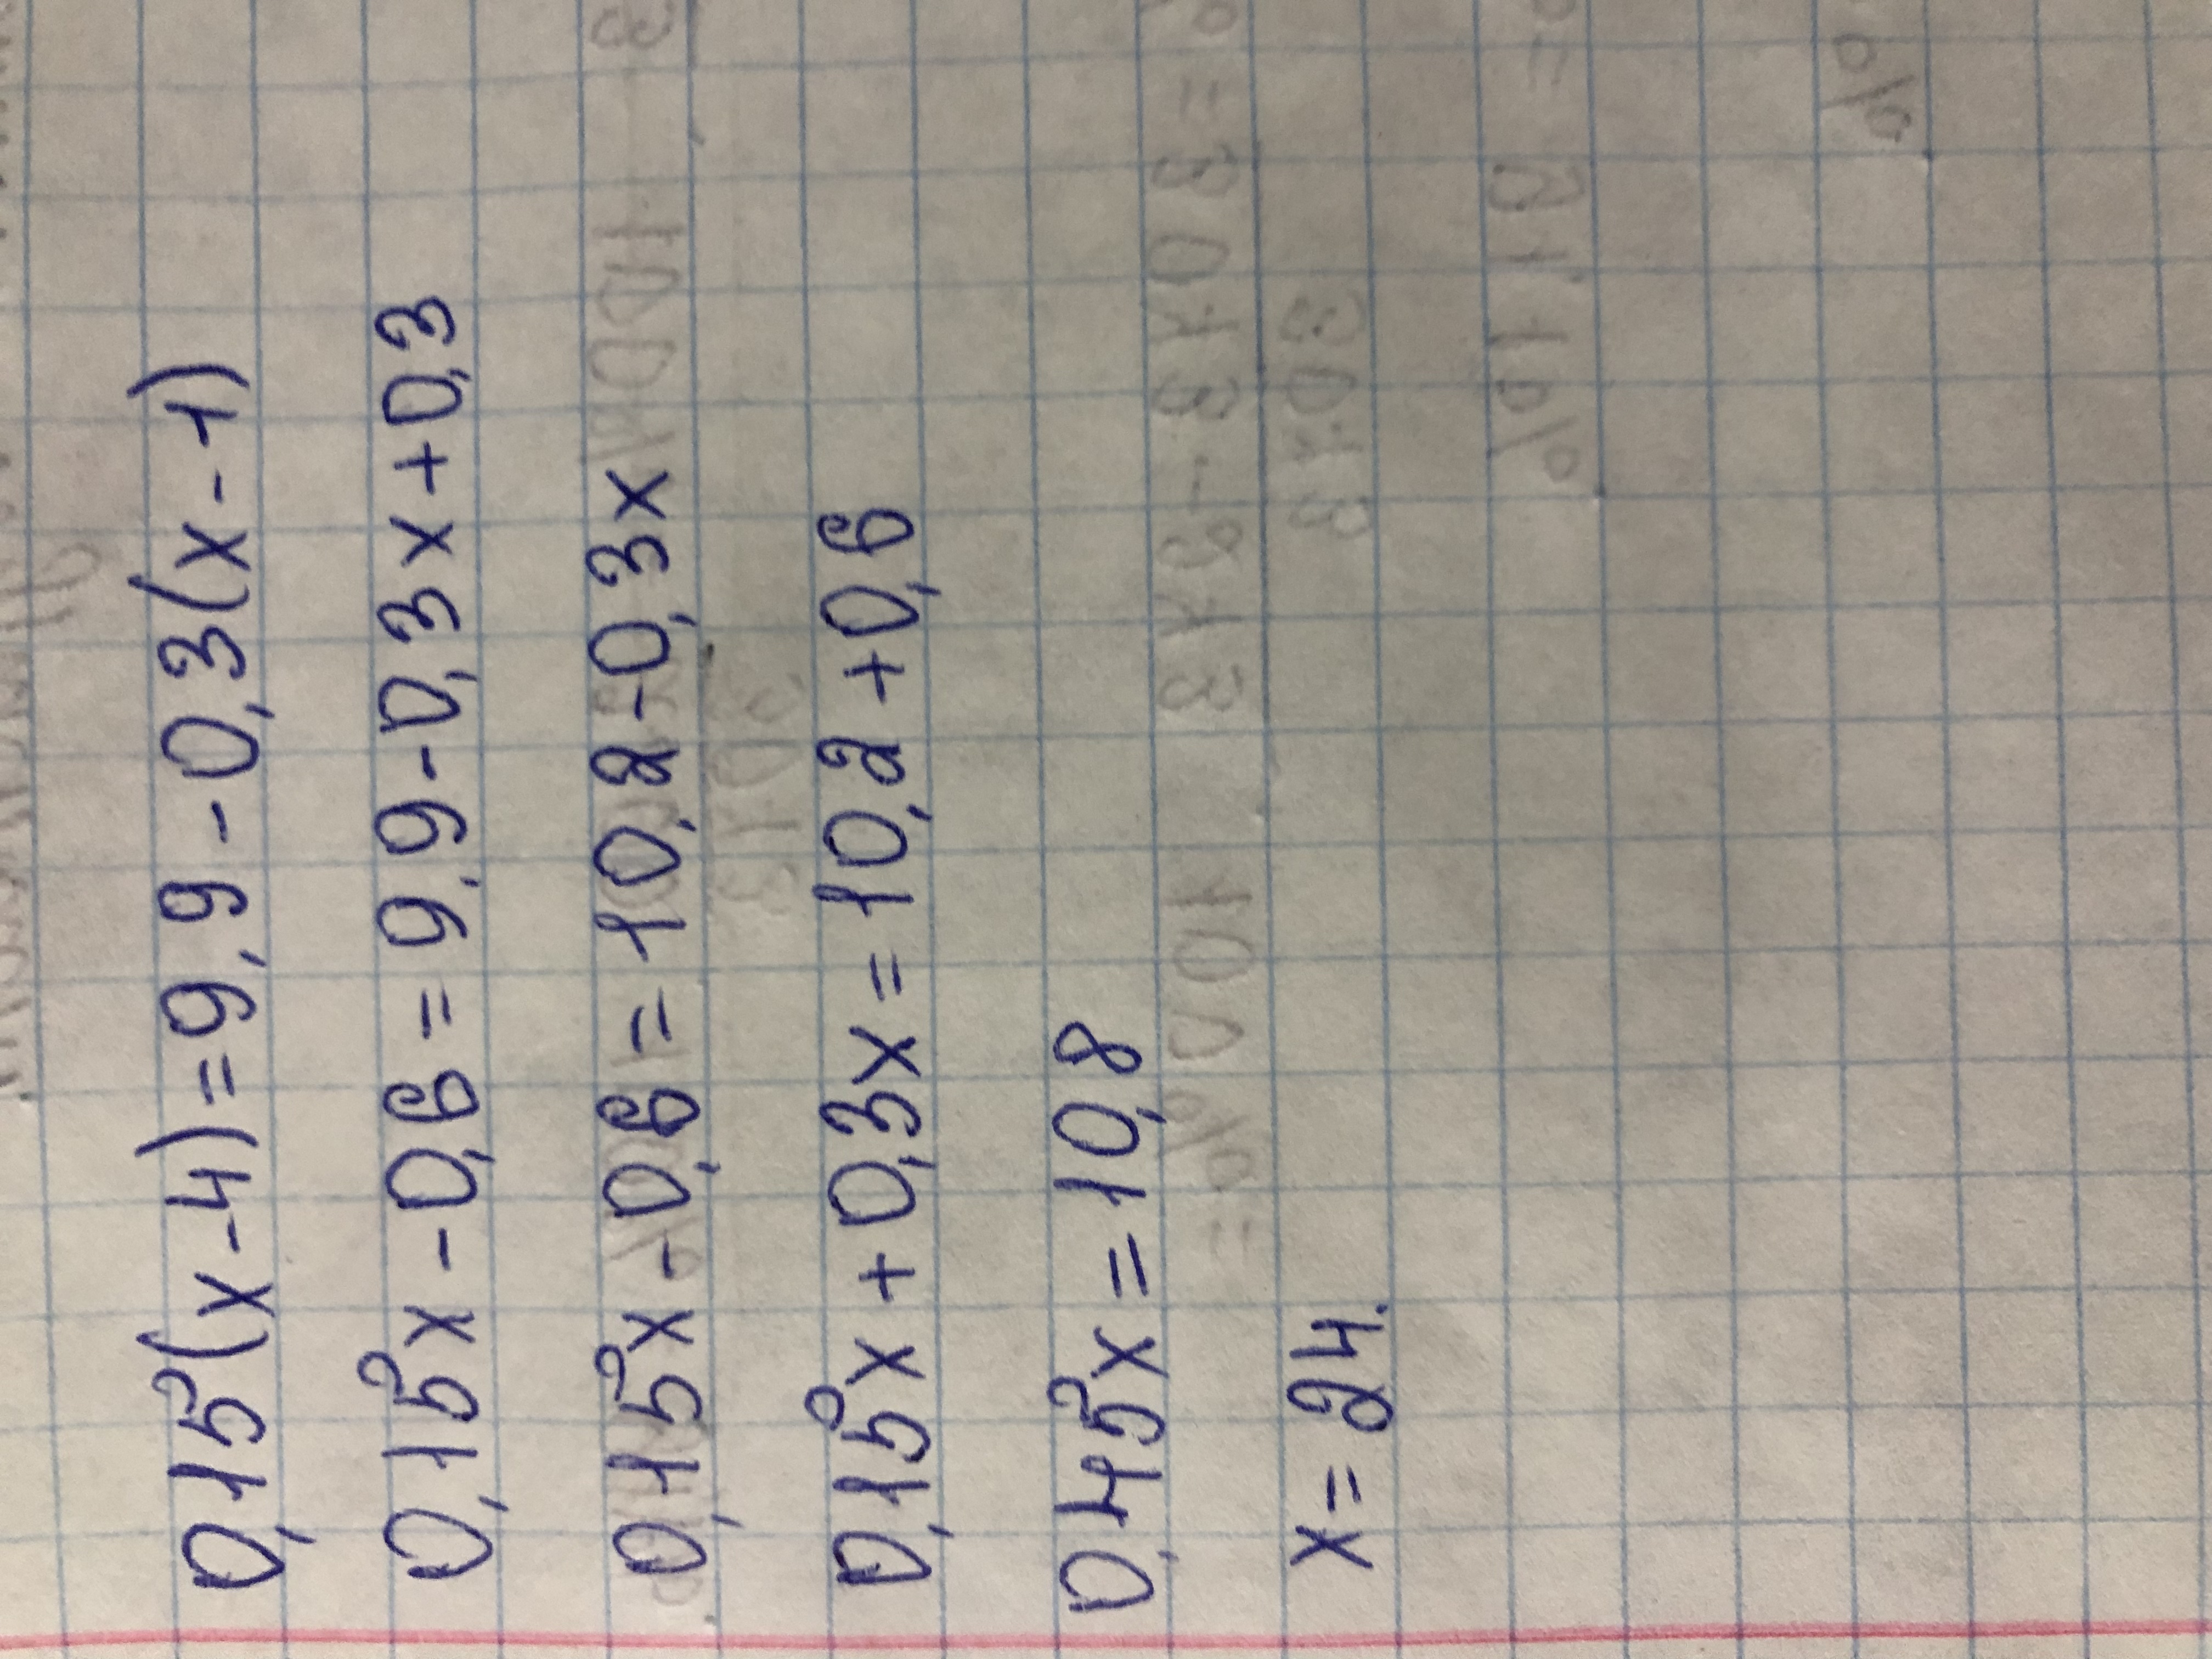 0,15(x-4)=9,9-0,3(x-1)
0,15x-0,6=9,9-0,3x+0,3
0,15x-0,6=10,2-0,3x
0,15x+0,3x=10,2+0,6
0,45x=10,8
x=24.